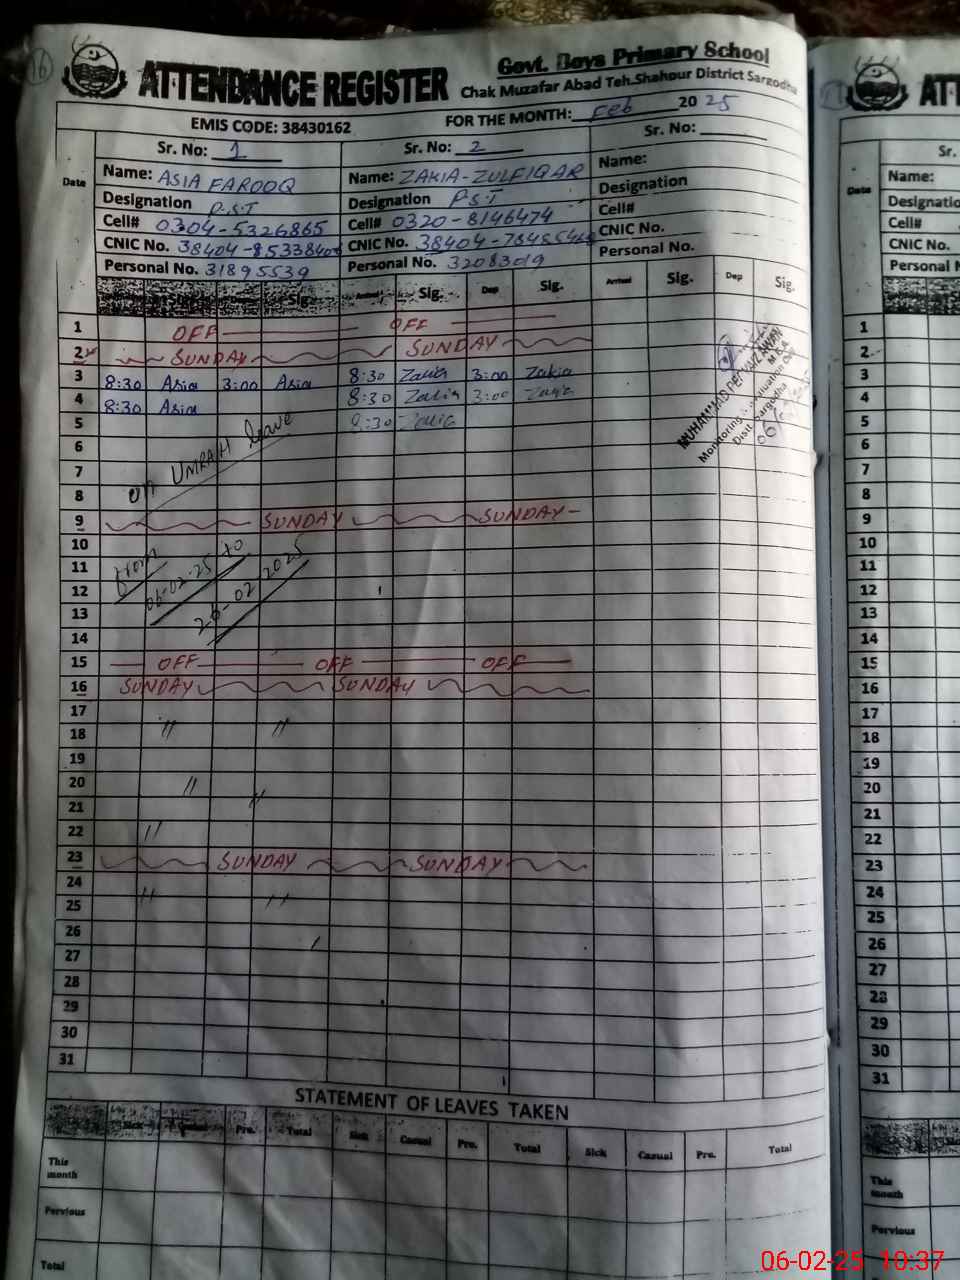 16
ATTENDANCE REGISTER
Govt. Boys Primary School
Chak Muzafar Abad Teh.Shahpur District Sargodha
EMIS CODE: 38430162 FOR THE MONTH: Feb 2025
Date Sr. No: 1 Sr. No: 2 Sr. No:
Name: ASIA FAROOQ Name: ZAKIA-ZULFIQAR Name:
Designation P.S.T Designation P.S.T Designation
Cell# 0304-5326865 Cell# 0320-8146474 Cell#
CNIC No. CNIC No. CNIC No.
Personal No. 31895539 Personal No. 32083019 Personal No.
Sig. Arrival Sig. Dep Sig. Arrival Sig. Dep Sig.
1 OFF OFF
2 SUNDAY SUNDAY
3 8:30 Asia 3:00 Asia 8:30 Zakia 3:00 Zakia
4 8:30 Asia 8:30 Zakia 3:00 Zakia
5 8:30 Zakia
6
7 on UMRAH leave
8
9 SUNDAY SUNDAY
10
11 from
12 06-02-25 to
13 20-02-2025
14
15 OFF OFF OFF
16 SUNDAY SUNDAY
17
18 〃 〃
19
20 〃
21 〃
22 〃
23 SUNDAY SUNDAY
24
25 〃 〃
26
27
28
29
30
31
MUHAMMAD PERVAIZ AWAN
M.E.A
Distt. Sargodha
STATEMENT OF LEAVES TAKEN
Sick Casual Pre. Total Sick Casual Pre. Total Sick Casual Pre. Total
This month
Pervious
Total
ATT
Sr.
Date Name:
Designatio
Cell#
CNIC No.
Personal N
1
2
3
4
5
6
7
8
9
10
11
12
13
14
15
16
17
18
19
20
21
22
23
24
25
26
27
28
29
30
31
This month
Pervious
06-02-25 10:37